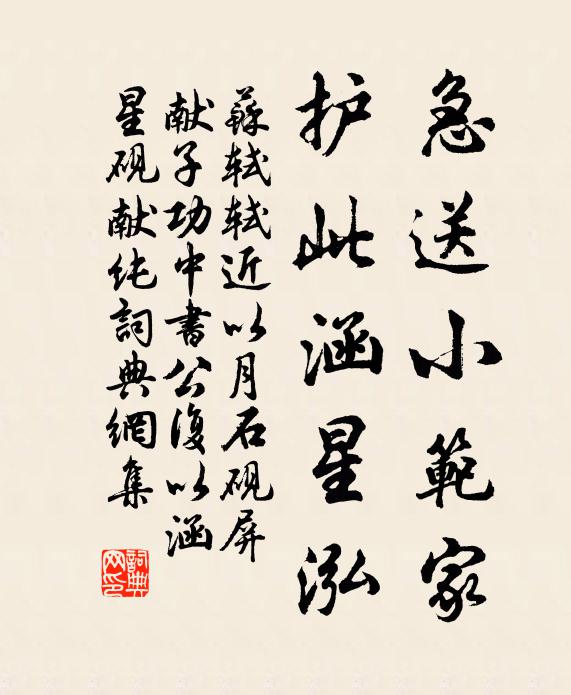 急送小範家
护此涵星泓
蘇轼轼近以月石砚屏
献子功中書公復以涵
星砚献纯詞典網集
詞典网印